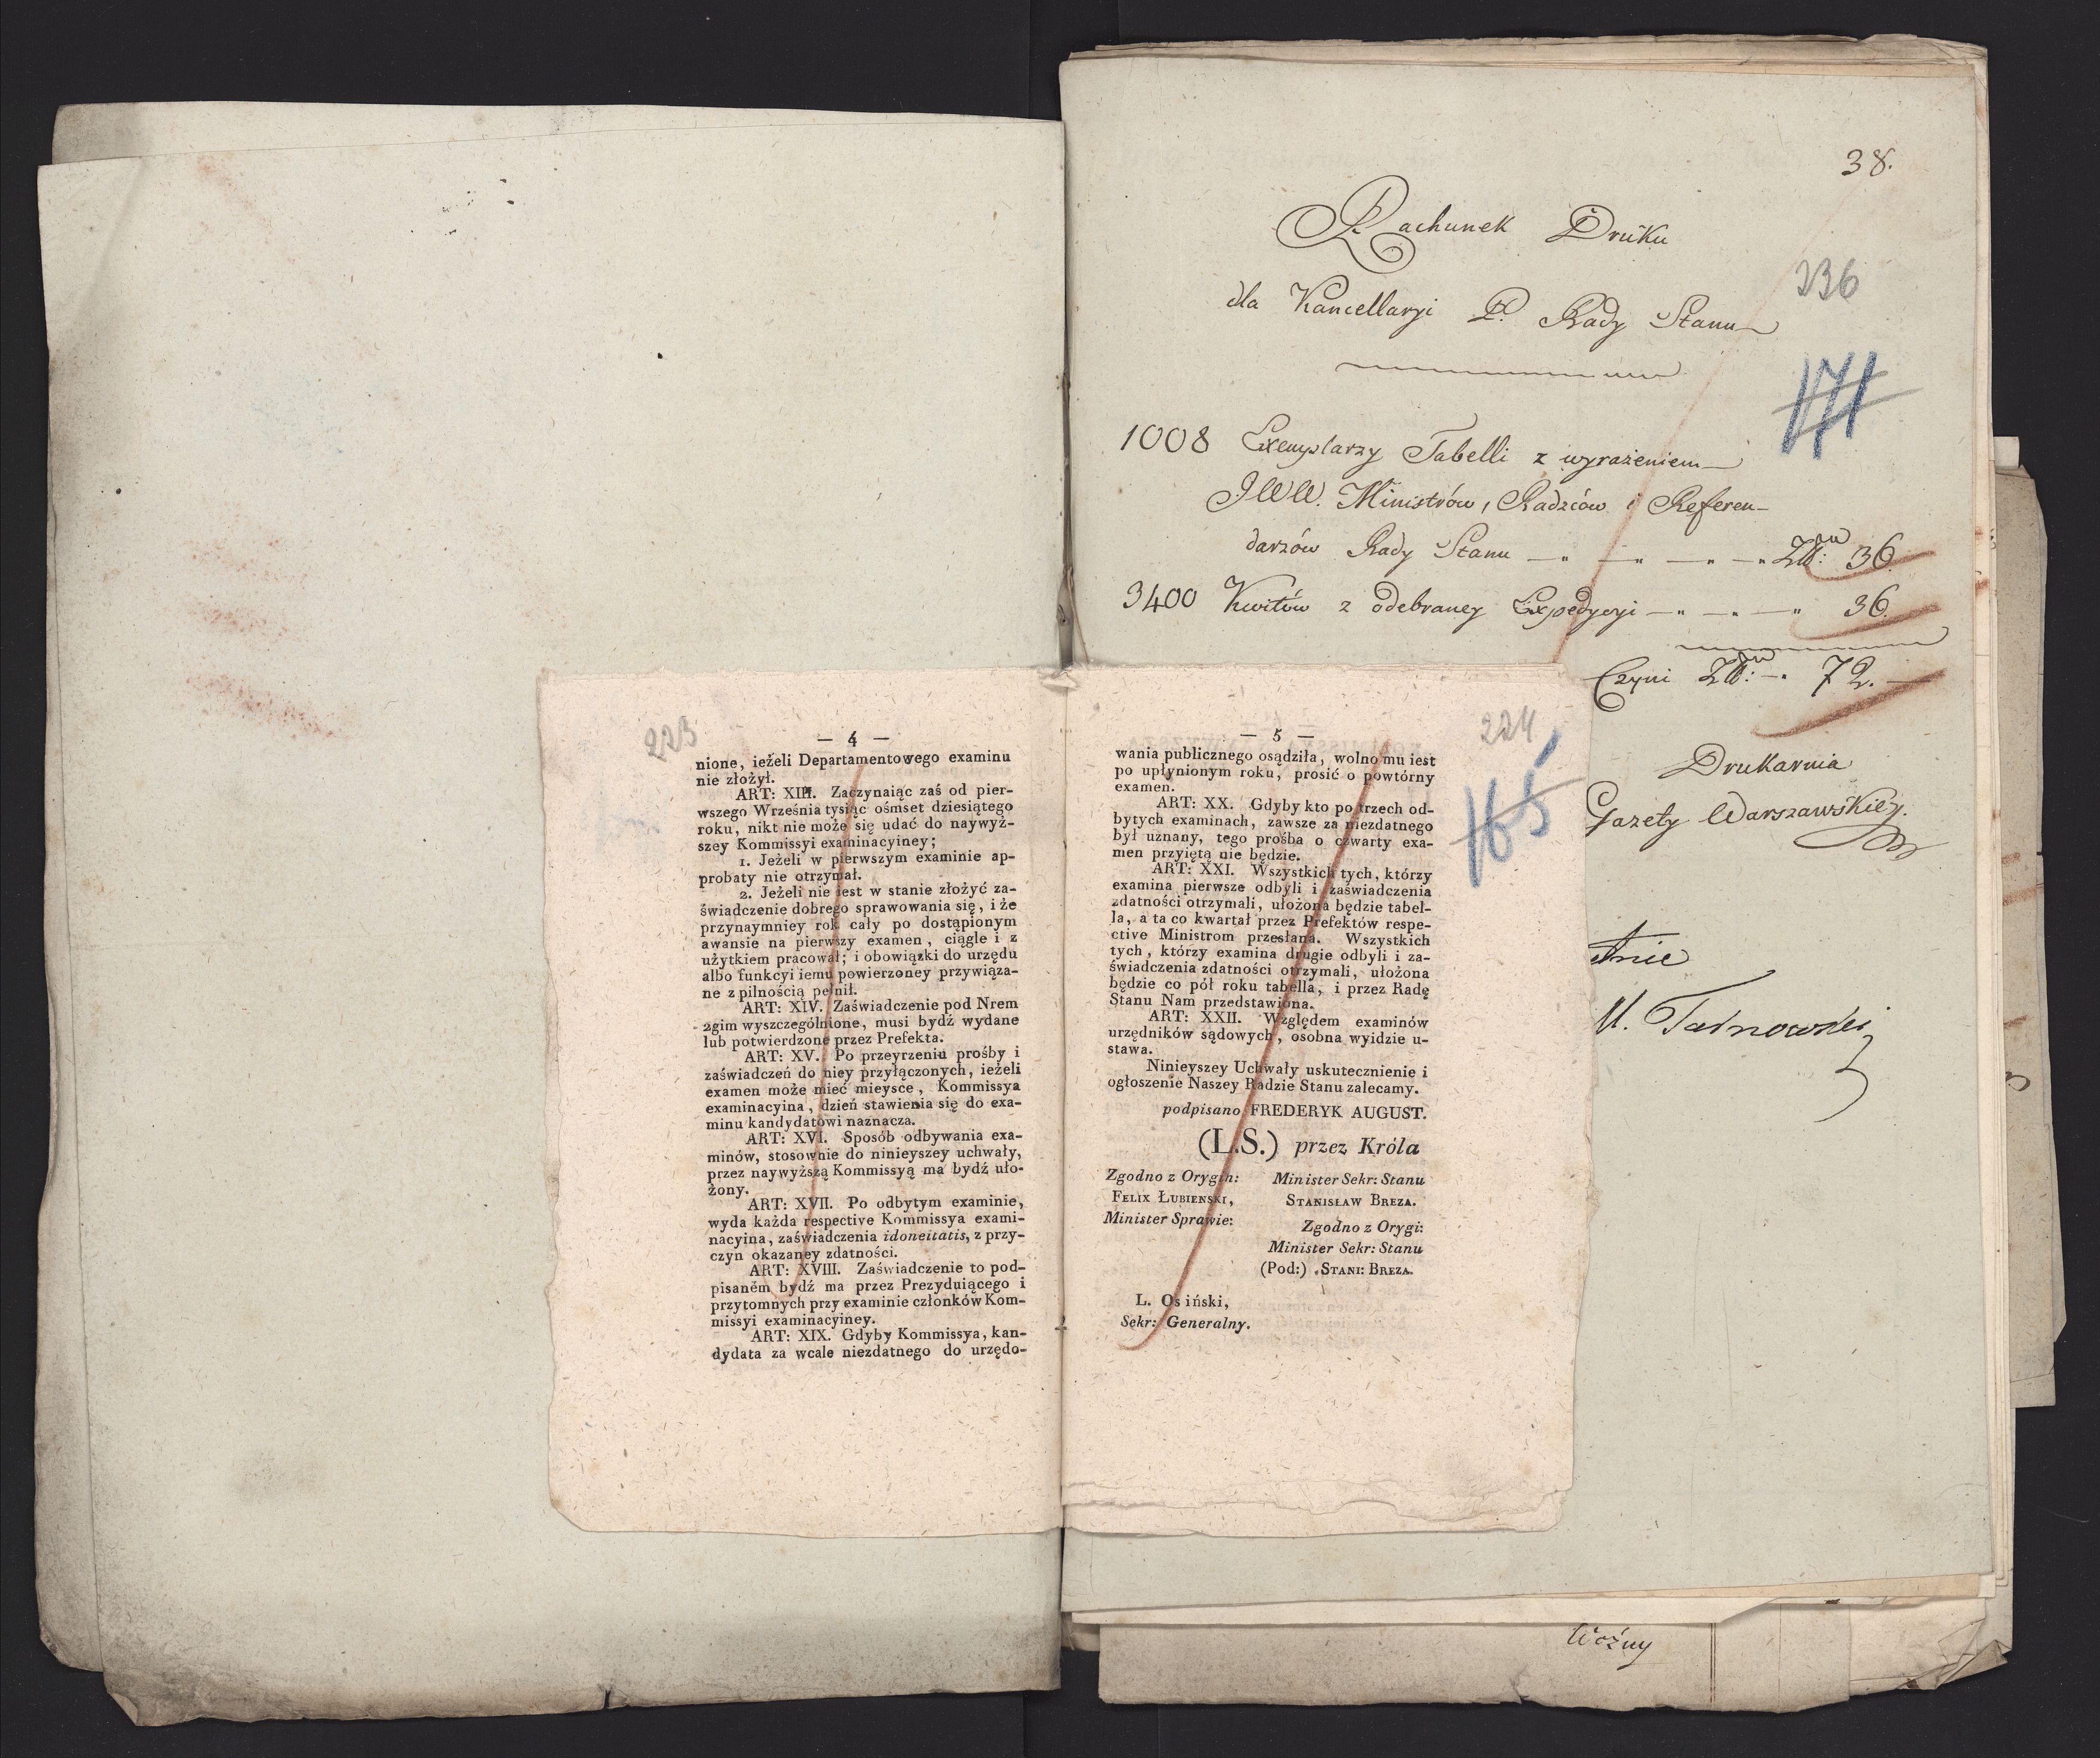 38.
Rachunek Druku
236
dla Kancellaryi P. Rady Stanu
171
1008 Exemplarzy Tabelli z wyrażeniem
JWW. Ministrów, Radzców i Referen-
darzów Rady Stanu — „ — „ — „ — „ Złł: 36.
3400 Kwitów z odebraney Expedycyi — „ — „ — „ 36.
Czyni Złł: — „ 72. —
Drukarnia
Gazety Warszawskiey.
M. Tarnowski
Woźny
223
— 4 —
nione, ieżeli Departamentowego examinu
nie złożył.
ART: XIII. Zaczynaiąc zaś od pier-
wszego Września tysiąc ośmset dziesiątego
roku, nikt nie może się udać do naywyż-
szey Kommissyi examinacyiney;
1. Jeżeli w pierwszym examinie ap-
probaty nie otrzymał.
2. Jeżeli nie iest w stanie złożyć za-
świadczenie dobrego sprawowania się, i że
przynaymniey rok cały po dostąpionym
awansie na pierwszy examen, ciągle i z
użytkiem pracował; i obowiązki do urzędu
albo funkcyi iemu powierzoney przywiąza-
ne z pilnością pełnił.
ART: XIV. Zaświadczenie pod Nrem
2gim wyszczególnione, musi bydź wydane
lub potwierdzone przez Prefekta.
ART: XV. Po przeyrzeniu prośby i
zaświadczeń do niey przyłączonych, ieżeli
examen może mieć mieysce, Kommissya
examinacyina, dzień stawienia się do exa-
minu kandydatowi naznacza.
ART: XVI. Sposób odbywania exa-
minów, stosownie do ninieyszey uchwały,
przez naywyższą Kommissyą ma bydź uło-
żony.
ART: XVII. Po odbytym examinie,
wyda każda respective Kommissya exami-
nacyina, zaświadczenia idoneitatis, z przy-
czyn okazaney zdatności.
ART: XVIII. Zaświadczenie to pod-
pisaném bydź ma przez Prezyduiącego i
przytomnych przy examinie członków Kom-
missyi examinacyiney.
ART: XIX. Gdyby Kommissya, kan-
dydata za wcale niezdatnego do urzędo-
224
165
— 5 —
wania publicznego osądziła, wolno mu iest
po upłynionym roku, prosić o powtórny
examen.
ART: XX. Gdyby kto po trzech od-
bytych examinach, zawsze za niezdatnego
był uznany, tego prośba o czwarty exa-
men przyiętą nie będzie.
ART: XXI. Wszystkich tych, którzy
examina pierwsze odbyli i zaświadczenia
zdatności otrzymali, ułożona będzie tabel-
la, a ta co kwartał przez Prefektów respe-
ctive Ministrom przesłana. Wszystkich
tych, którzy examina drugie odbyli i za-
świadczenia zdatności otrzymali, ułożona
będzie co pół roku tabella, i przez Radę
Stanu Nam przedstawiona.
ART: XXII. Względem examinów
urzędników sądowych, osobna wyidzie u-
stawa.
Ninieyszey Uchwały uskutecznienie i
ogłoszenie Naszey Radzie Stanu zalecamy.
podpisano FREDERYK AUGUST.
(L.S.) przez Króla
Zgodno z Orygin: Minister Sekr: Stanu
FELIX ŁUBIENSKI, STANISŁAW BREZA.
Minister Sprawie: Zgodno z Orygi:
Minister Sekr: Stanu
(Pod:) STANI: BREZA.
L. Osiński,
Sekr: Generalny.